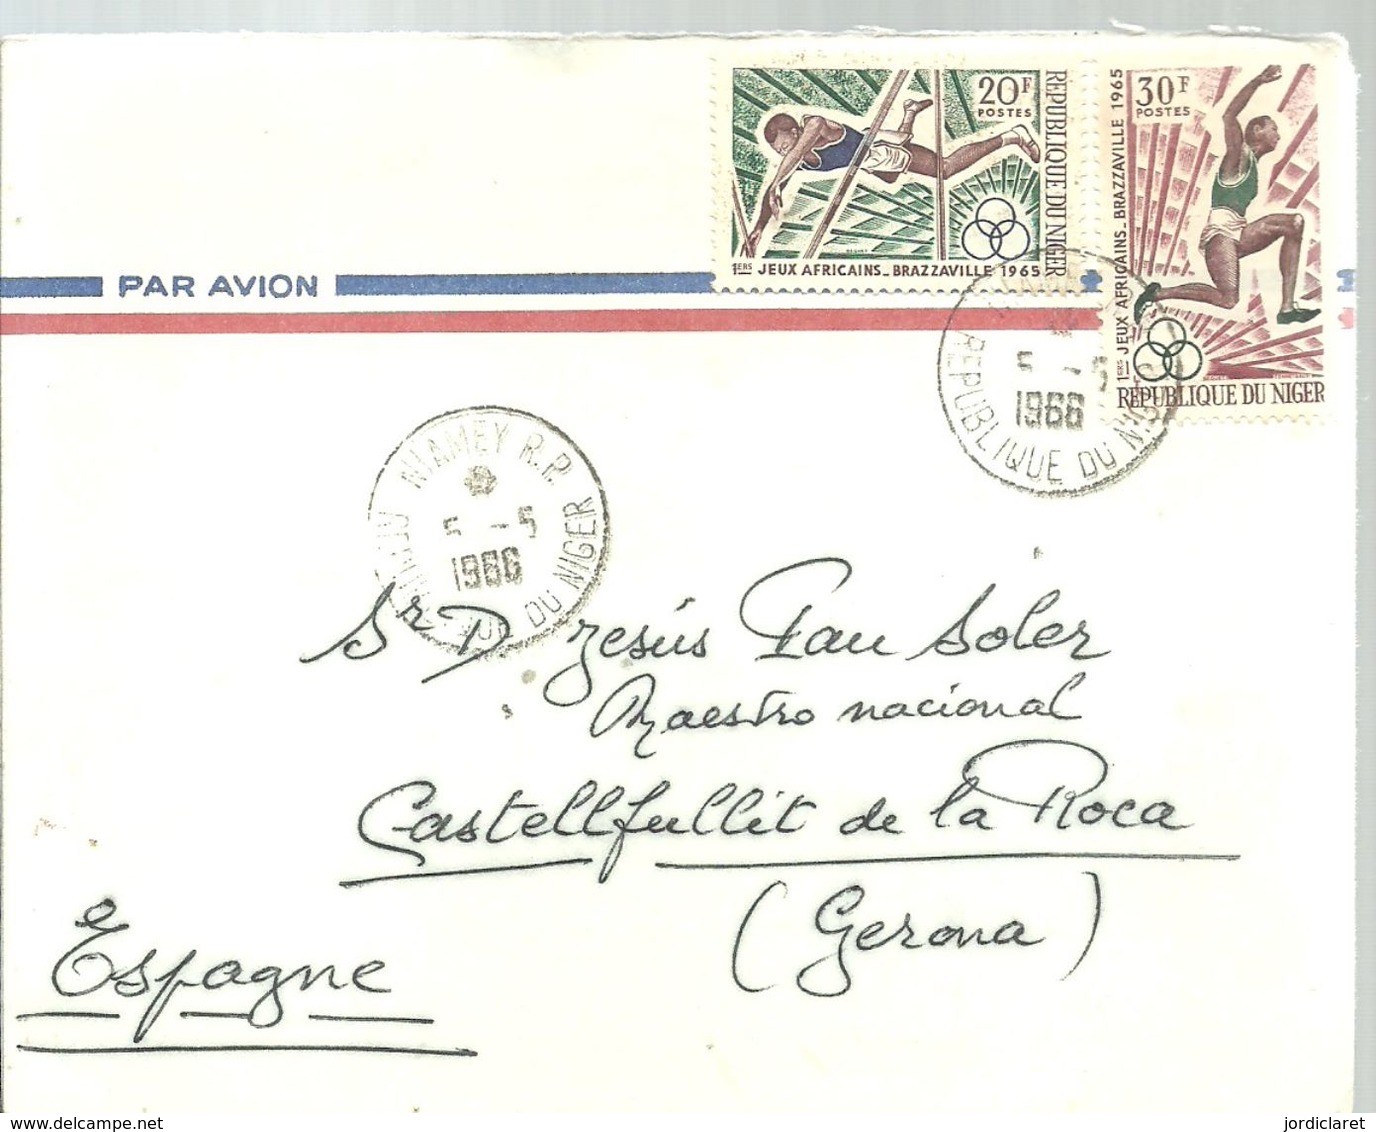 PAR AVION
20F
POSTES
REPUBLIQUE DU NIGER
1ERS JEUX AFRICAINS_BRAZZAVILLE 1965
30F
POSTES
1ERS JEUX AFRICAINS_BRAZZAVILLE 1965
REPUBLIQUE DU NIGER
5 -5
1966
REPUBLIQUE DU NIGER
NIAMEY R.P.
5 -5
1966
REPUBLIQUE DU NIGER
Sr D Jesús Pau Soler
Maestro nacional
Castellfullit de la Roca
(Gerona)
Espagne
www.delcampe.net
jordiclaret